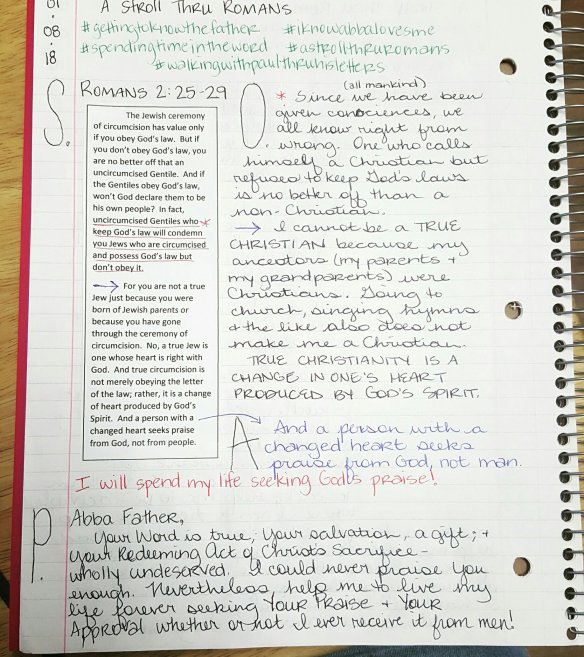 01
·
08
·
18
A STROLL THRU ROMANS
#gettingtoknowthefather #iknowabbalovesme
#spendingtimeintheword #astrollthruromans
#walkingwithpaulthruhisletters
S.
ROMANS 2:25-29
The Jewish ceremony
of circumcision has value only
if you obey God's law. But if
you don't obey God's law, you
are no better off that an
uncircumcised Gentile. And if
the Gentiles obey God's law,
won't God declare them to be
his own people? In fact,
uncircumcised Gentiles who *
keep God's law will condemn
you Jews who are circumcised
and possess God's law but
don't obey it.
→ For you are not a true
Jew just because you were
born of Jewish parents or
because you have gone
through the ceremony of
circumcision. No, a true Jew is
one whose heart is right with
God. And true circumcision is
not merely obeying the letter
of the law; rather, it is a change
of heart produced by God's
Spirit. And a person with a
changed heart seeks praise
from God, not from people.
O.
(all mankind)
* Since we have been
given consciences, we
all know right from
wrong. One who calls
himself a Christian but
refuses to keep God's laws
is no better off than a
non-Christian.
→ I cannot be a TRUE
CHRISTIAN because my
ancestors (my parents +
my grandparents) were
Christians. Going to
church, singing hymns
+ the like also does not
make me a Christian.
TRUE CHRISTIANITY IS A
CHANGE IN ONE'S HEART
PRODUCED BY GOD'S SPIRIT.
A
And a person with a
changed heart seeks
praise from God, not man.
I will spend my life seeking God's praise!
P.
Abba Father,
Your Word is true, Your salvation, a gift; +
Your Redeeming Act of Christ's Sacrifice -
wholly undeserved. I could never praise You
enough. Nevertheless, help me to live my
life forever seeking YOUR PRAISE + YOUR
APPROVAL whether or not I ever receive it from men!